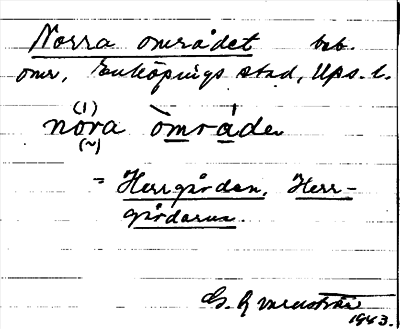 Norra området beb.
omr, Enköpings stad, Ups. l.
(1)
nora òmråde
(~)
= Herrgården, Herr-
gårdarna.
G.
1943.